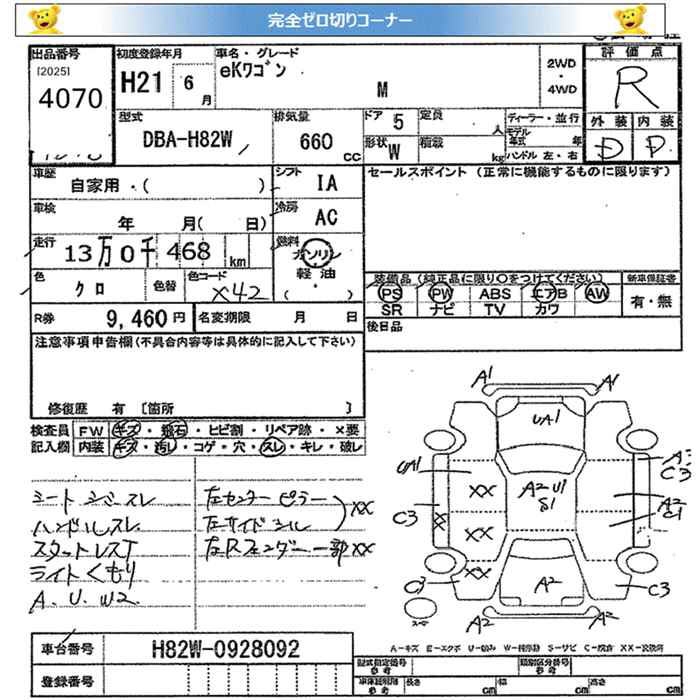 完全ゼロ切りコーナー
出品番号
[2025]
4070
初度登録年月
H21 6月
車名・グレード
eKワゴン
M
2WD
・
4WD
評価点
R
外装 内装
D D
型式
DBA-H82W
排気量
660 cc
ドア 5
形状 W
定員 人
積載 kg
ディーラー・並行
モデル年式 年
ハンドル 左・右
車歴
自家用・( )
シフト
IA
セールスポイント (正常に機能するものに限ります)
車検
年 月( 日)
冷房
AC
走行
13万0千468 km
燃料
ガソリン
・
軽油
( )
色
クロ
色替
色コード
X42
装備品 (純正品に限り○をつけてください)
新車保証書
PS PW ABS エアB AW
SR ナビ TV カワ
有・無
後日品
R券 9,460円
名変期限 月 日
注意事項申告欄(不具合内容等は具体的に記入して下さい)
修復歴 有 [箇所 ]
検査員 FW キズ・飛石・ヒビ割・リペア跡・×要
記入欄 内装 キズ・汚レ・コゲ・穴・スレ・キレ・破レ
シートシミスレ
ハンドルスレ
スタットレスT
ライトくもり
A. U. W2
左センターピラー
左サイドシル
XX
左Rフェンダー一部XX
A1
A1
UA1
UA1
A2 U1
S1
XX
XX
XX
C3
C3
C3
A2
C1
C3
A2
A2
A2
A-キズ E-エクボ U-凹み W-補修跡 S-サビ C-腐食 XX-交換済
車台番号
H82W-0928092
登録番号
型式指定番号
参考
類別区分番号
参考
車体総明細
参考
長さ cm
幅 cm
高さ cm